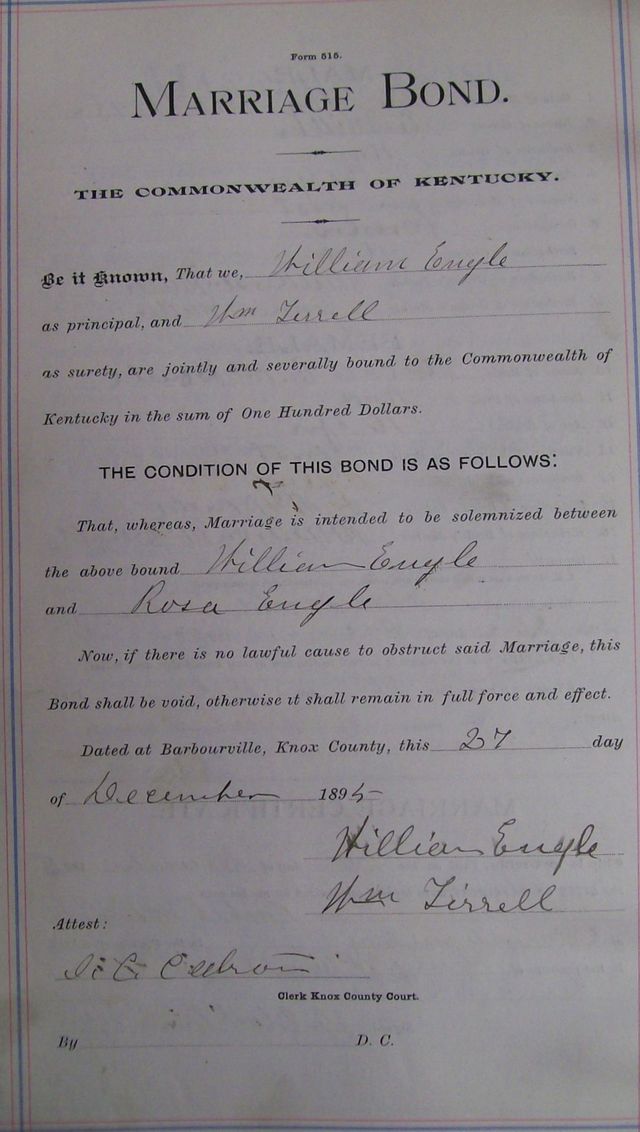 Form 515.
MARRIAGE BOND.
THE COMMONWEALTH OF KENTUCKY.
Be it Known, That we, William Engle
as principal, and Wm Terrell
as surety, are jointly and severally bound to the Commonwealth of
Kentucky in the sum of One Hundred Dollars.
THE CONDITION OF THIS BOND IS AS FOLLOWS:
That, whereas, Marriage is intended to be solemnized between
the above bound William Engle
and Rosa Engle
Now, if there is no lawful cause to obstruct said Marriage, this
Bond shall be void, otherwise it shall remain in full force and effect.
Dated at Barbourville, Knox County, this 27 day
of December 1895
William Engle
Wm Tirrell
Attest:
Clerk Knox County Court.
By D. C.